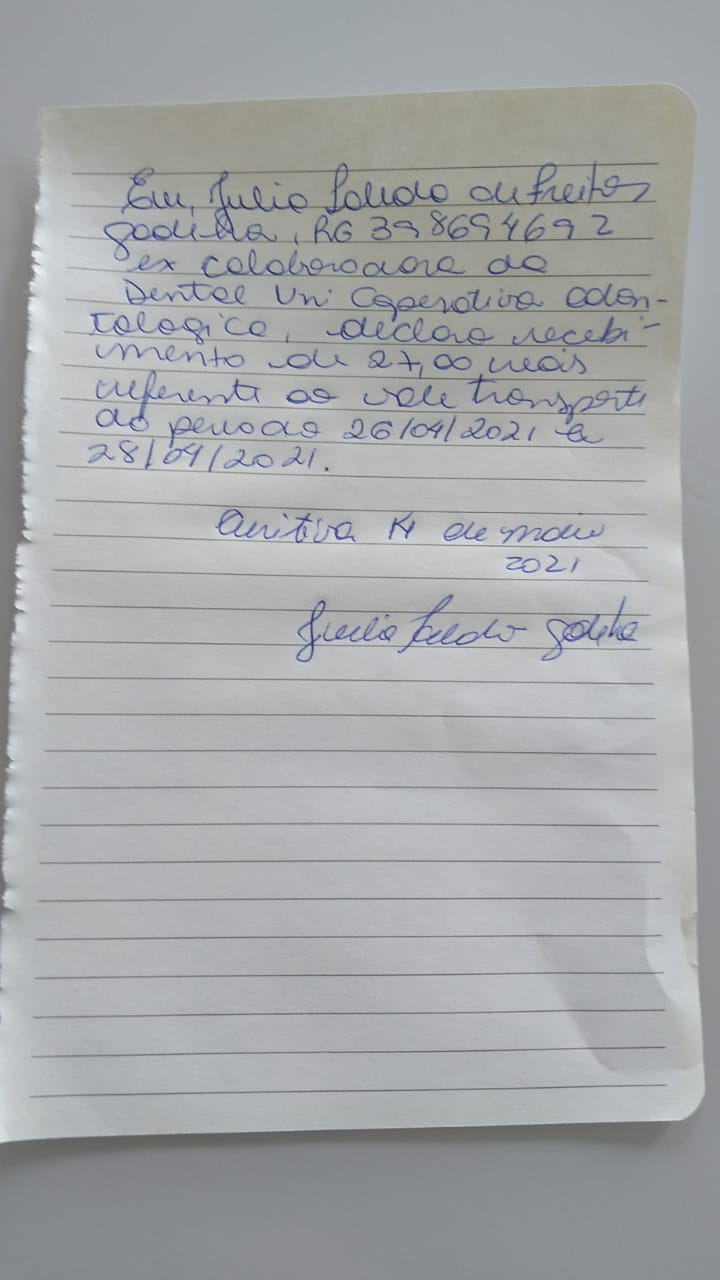 Eu, Julia Salido de Freitas
Godinha, RG 398694692
ex colaboradora da
Dental Uni Coperativa Odon-
tologica, declaro recebi-
mento de 27,00 reais
referente ao vale transporte
do periodo 26/04/2021 a
28/04/2021.
Curitiva 14 de maio
2021
Julia